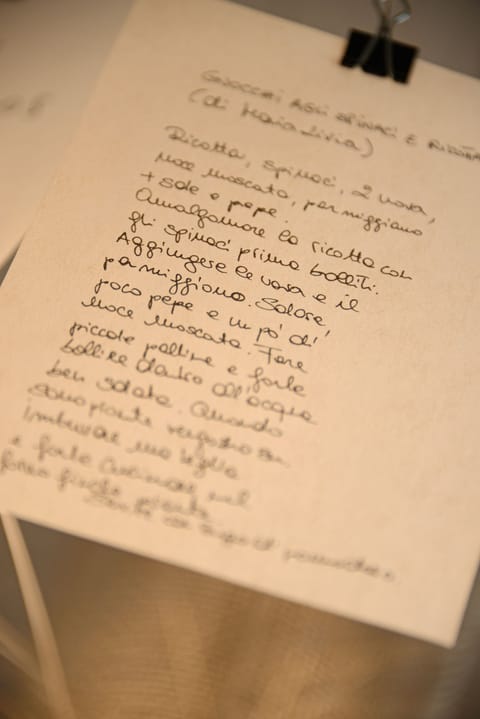 GNOCCHI AGLI SPINACI E RICOTTA
(di Maria Livia)
Ricotta, spinaci, 2 uova,
noce moscata, parmiggiano
+ sale e pepe.
Amalgamare la ricotta con
gli spinaci prima bolliti.
Aggiungere le uova e il
parmiggiano. Salare,
poco pepe e un po' di
noce moscata. Fare
piccole palline e farle
bollire dentro all'acqua
ben salata. Quando
sono pronte vengono su.
Imburrare una teglia
e farle cucinare nel
forno finché